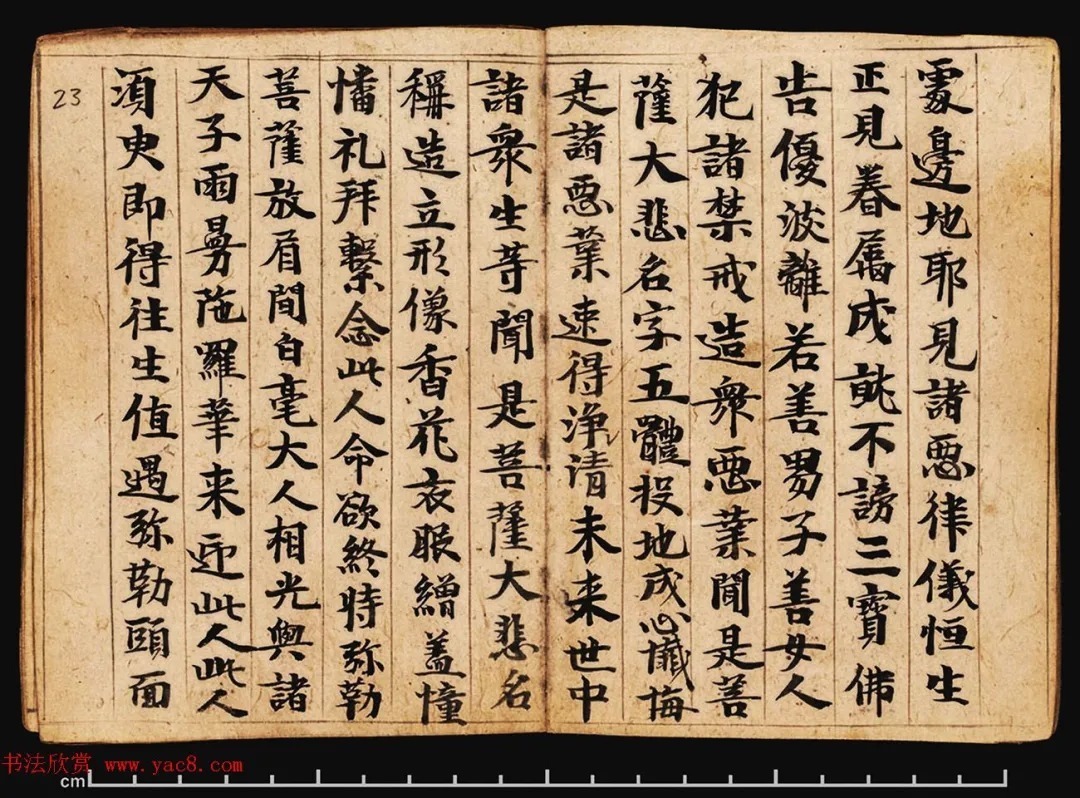 處邊地耶見諸惡律儀恒生
正見眷属成就不謗三寶佛
告優波離若善男子善女人
犯諸禁戒造衆惡業聞是菩
薩大悲名字五體投地成心懺悔
是諸惡業速得浄清未来世中
諸衆生等聞是菩薩大悲名
稱造立形像香花衣服繒盖幢
幡礼拜繫念此人命欲終時弥勒
菩薩放眉間白毫大人相光與諸
天子雨曼陁羅華来迎此人此人
須臾即得往生值遇弥勒頭面
23
书法欣赏 www.yac8.com
cm